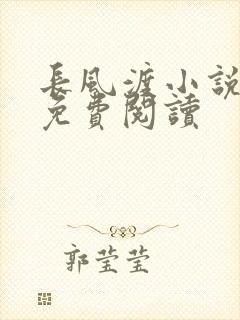 長風渡小說
免費閱讀
郭莹莹